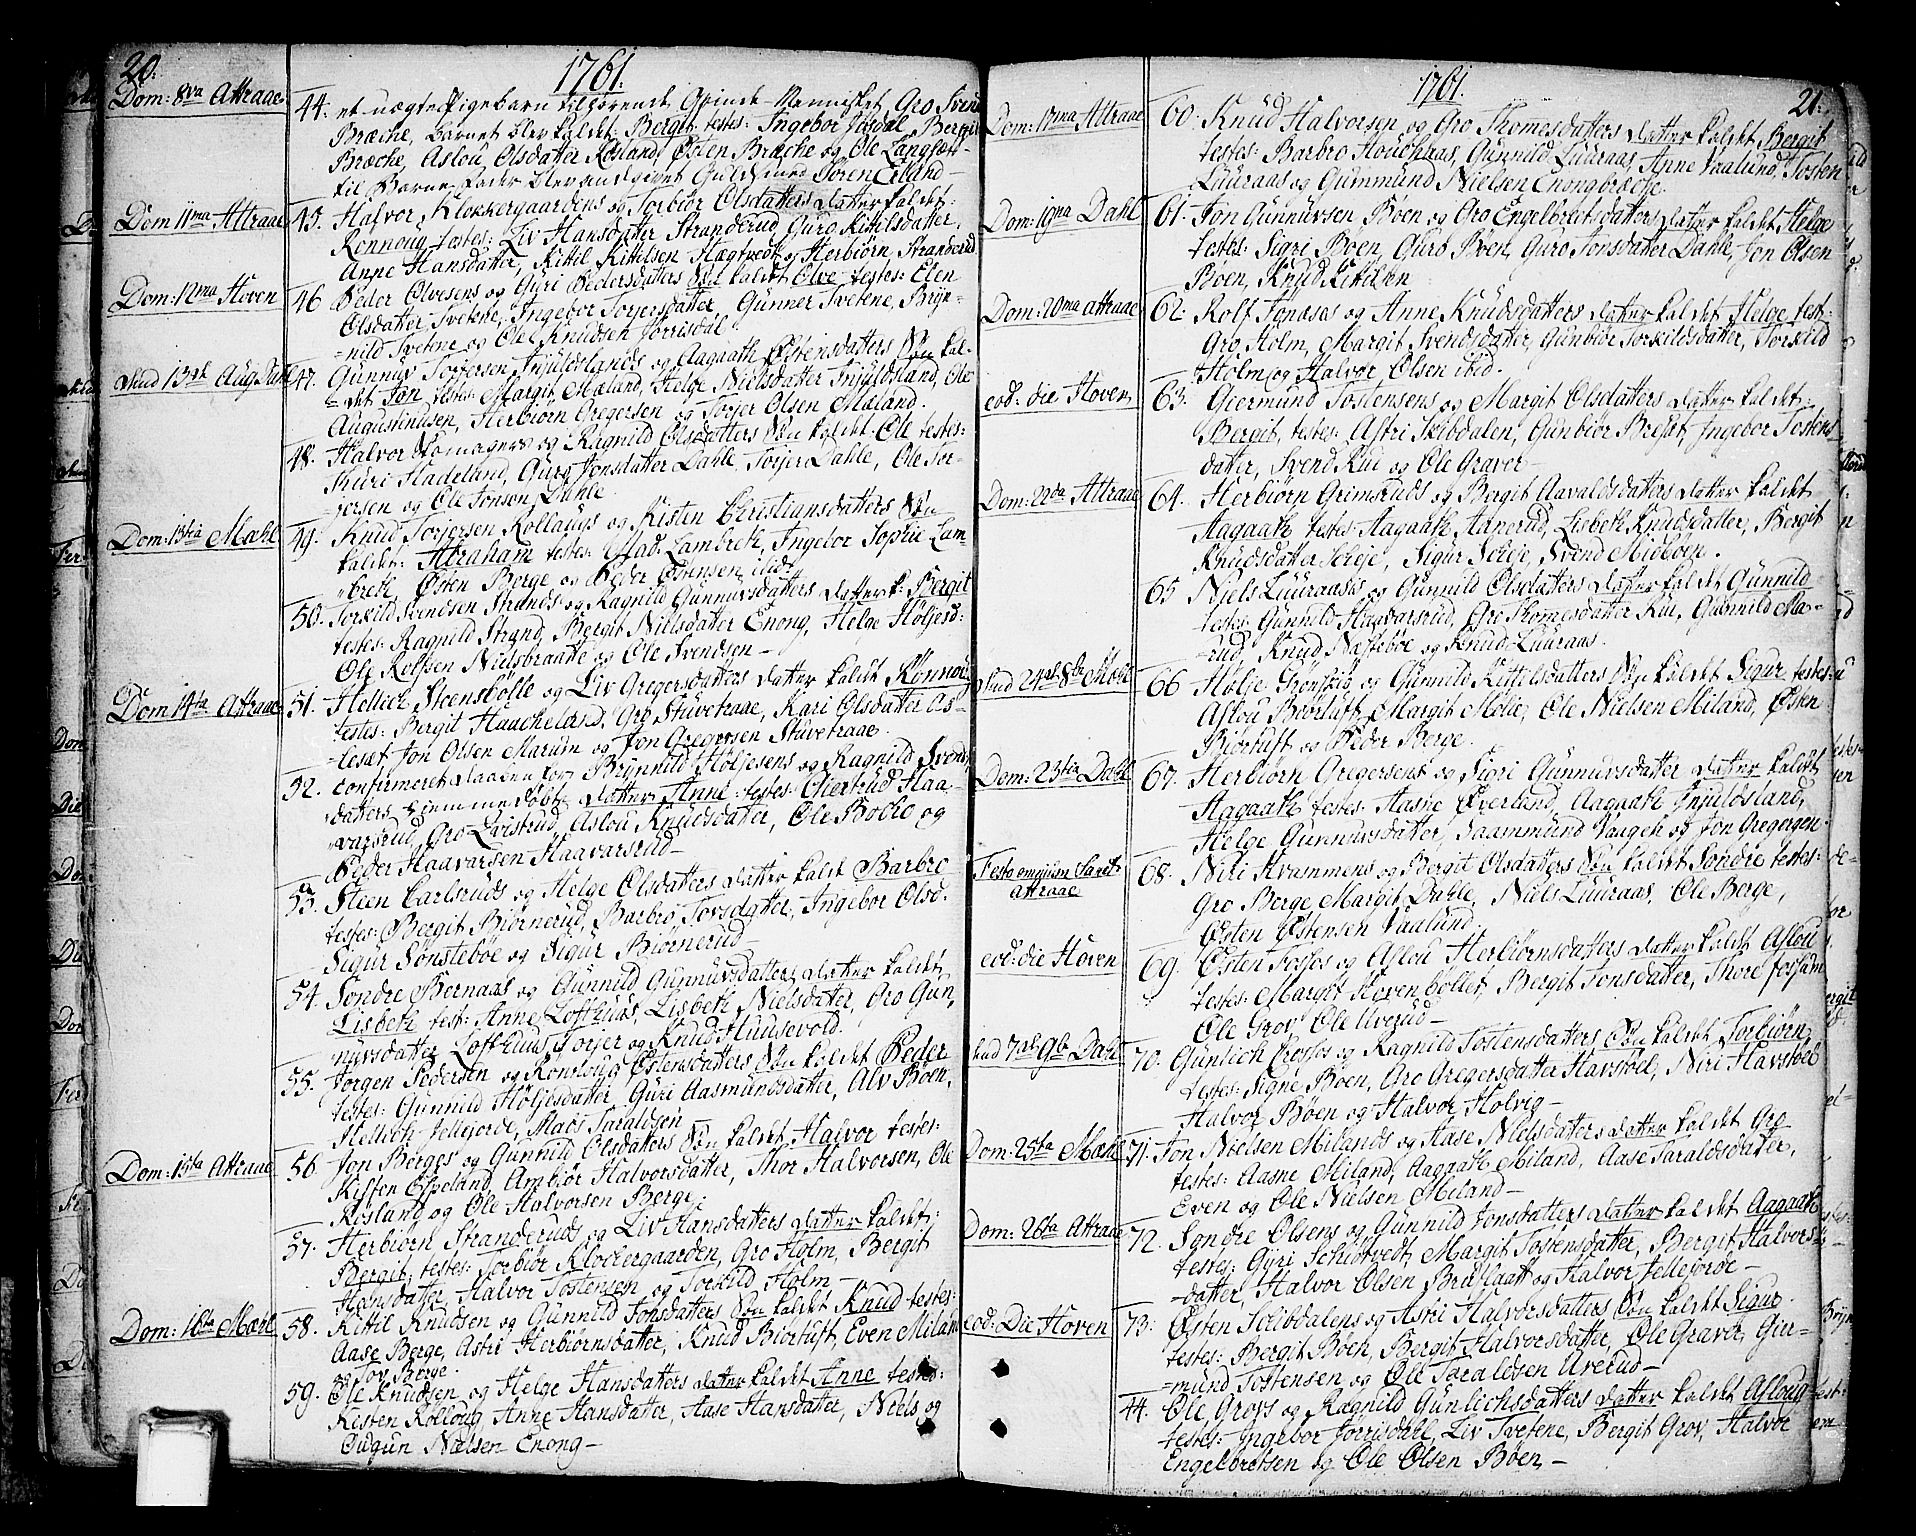 20.
1761.
Dom: 8va Attraae
44. et uægte Pigebarn tilhørende Qvinde-Mennisket Gro Svends
Bræche, barnet blev kaldet: Bergit testes: Ingebor Jøsdal, Bergit
Bræche, Aslou Olsdatter Røsland, Østen Bræche og Ole Langsæt-
til Barne-Fader blev angivet Guldsmed Søren Eiland-
Dom 11ma Attraae
45. Halvor Klokkergaardens og Torbiør Olsdatters datter kaldet:
Ronnoug testes: Liv Hansdatter Stranderud, Guro Kittilsdatter,
Anne Hansdatter, Kittil Kittilsen Hægtvedt og Herbiørn Stranderud
Dom: 12ma Hoven
46 Peder Olvesens og Gyri Pedersdatters Søn kaldet Olve- testes: Elen
Olsdatter Tvetene, Ingebor Torjersdatter, Gunner Tvetene, Bryn-
=nild Tvetene og Ole Knudsen Jørrisdal
47. Gunnuv Torjersen Injuldslands og Aagaath Østensdatters Søn kal-
=det Jon testes: Margit Mæland, Helge Nielsdatter Injuldsland, Ole
Augustinusen, Herbiørn Gregersen og Torjer Olsen Mæland.
48. Halvor Skomagers og Ragnild Olsdatters Søn kaldet Ole testes:
Thuri Hadeland, Guro Jonsdatter Dahle, Torjer Dahle, Ole Tor-
jersen og Ole Jonsøn Dahle
Dom: 13tia Mæhl
49. Knud Torjersen Rollaugs og Kisten Christiansdatters Søn
kaldet Abraham testes: Mad. Lambreth, Ingebor Sophie Lam-
breth, Østen Berge og Peder Østensen ibid:
50. Torkild Svendsen Strands og Ragnild Gunnuvsdatters datter k: Bergit
testes: Ragnild Strand, Bergit Nielsdatter Enong, Helge Høljesd-
Ole Rolfsen Nielsbraatte og Ole Svendsen-
Dom 14ta Attraae
51. Hellich Steensbølle og Liv Gregersdatters datter kaldt Rønnou,
testes: Bergit Haacheland, Gro Stuvetraae, Kari Olsdatter Os-
=lesæt, Jon Olsen Marum og Jon Gregersen Stuvetraae
52. confirmeret daaben for Brynnild Høljesens og Ragnild Svens
datters hiemmedøbt datter Anne: testes: Giertrud Haa-
varsrud, Gro Qvistrud, Aslou Knudsdatter, Ole Boklo og
Peder Haavarsen Haavarsrud-
53. Steen Carlsruds og Helge Olsdatters datter kaldet Barbro
testes: Bergit Biørnerud, Barbro Torsdatter, Ingebor Olsd.
Sigur Sønsteböe og Sigur Biørnerud-
54. Søndre Bernaas og Gunnild Gunnuvsdatters datter kaldet
Lisbeth test: Anne Lofthuus, Lisbeth Nielsdatter, Gro Gun,
nuvsdatter Lofthuus, Torjer og Knud Huusevold.
55. Jørgen Pedersen og Ronnoug Østensdatters Søn kaldet Peder
testes: Gunnild Høljesdatter, Guri Aasmundsdatter, Alv Bøen,
Hellich Jellejorde, Mads Taraldsen
Dom: 15ta Attraae
56. Jon Berges og Gunnild Olsdatters Søn kaldet Halvor testes:
Kisten Espeland, Ambiør Halvorsdatter, Thor Halvorsen, Ole
Røsland og Ole Halvorsen Berge;
57. Herbiørn Stranderuds og Liv Hansdatters datter kaldet:
Bergit, testes: Torbiør Klochergaarden, Gro Holm, Bergit
Hansdatter, Halvor Tostensen og Torkild Holm-
Dom: 16ta Mæhl
58. Kittil Knudsen og Gunnild Jonsdatters Søn kaldet Knud testes:
Aase Berge, Astri Herbiørnsdatter, Knud Biørtuft, Even Miland
og Tov Berge.
59. Ole Knudsen og Helge Hansdatters datter kaldet Anne testes:
Kesten Rolloug, Anne Hansdatter, Aase Hansdatter, Niels og
Gugun Nielsen Enong-
1761.
21.
Dom: 17ma Attraae
60. Knud Halvorsen og Gro Thomesdatters datter kaldet Bergit
testes: Barbro Houchaas, Gunnild Luuraas, Anne Vaalund, Tosten
Luuraas og Gummund Nielsen Enongbræche.
Dom: 19na Dahl
61. Jon Gunnuvsen Bøen og Gro Engelbretsdatters datter kaldet Helge
testes: Sigri Bøen, Guro Bøen, Guro Jonsdatter Dahle, Jon Olsen
Bøen, Knud Kitilsen
Dom: 20ma attraae
62. Rolf Jonæsas og Anne Knudsdatters datter kaldet Helge test-
Gro Holm, Margit Svendsdatter, Gunbiør Torkildsdatter, Torkild
Holm og Halvor Olsen ibid.
eod: die Hoven
63. Giermund Tostensens og Margit Olsdatters datter kaldet:
Bergit, testes: Astri Skibdalen, Gunbiør Bresæt, Ingebor Tostens
datter, Svend Rui og Ole Graver-
Dom: 22da Attraae
64. Herbiørn Grimsruds og Bergit Aavaldsdatters datter kaldet
Aagaath testes: Aagaath Aanerud, Lisbeth Knudsdatter, Bergit
Knudsdatter Scheje, Sigur Scheje, Svend Midbøen.
65 Niels Luuraasis og Gunnild Olsdatters datter kaldet Gunnild-
testes: Gunnild Haavarsrud, Gro Thomesdatter Rui, Gunnild Mæ-
-rud Knud Nasteböe og Knud Luuraas.
66 Hølje Grønskiø og Gunnild Kittilsdatters Søn kaldet Sigur testes:
Aslou Biørtuft, Margit Mæle, Ole Nielsen Miland, Østen
Biørtuft og Peder Berge.
Dom: 23tia Dahl
67. Herbiørn Gregersens og Sigri Gunnuvsdatter datter kaldet
Aagaath testes: Aasne Øverland, Aagaath Injuldsland,
Helge Gunnuvsdatter, Saammund Vaageh og Jon Gregersen.
Festo omnium Sanct: attraae
68. Niri Kvammens og Bergit Olsdatters Søn kaldet Søndre testes:
Gro Berge, Margit Dahle, Niels Luuraas, Ole Berge,
Østen Østensen Vaalund
eod: die Hoven
69. Østen Fosses og Aslou Herbiørnsdatters datter kaldet Aslou
testes: Margit Hovenbøllet, Bergit Jonsdatter, Thore Foslum
Ole Grov, Ole Uverud-
70. Gunlich Grosfos og Ragnild Tostensdatters Søn kaldet Torbiørn
testes: Signe Bøen, Gro Gregersdatter Havstøel, Niri Havstøel
Halvor Bøen og Halvor Holvig-
Dom: 25ta Mæhl
71. Jon Nielsen Milands og Aase Nielsdatters datter kaldet Gro
testes: Aasne Miland, Aagaath Miland, Aase Taraldsdatter,
Even og Ole Nielsen Miland-
Dom: 26ta Attraae
72. Søndre Olsens og Gunnild Jonsdatters datter kaldet Aagaath
testes: Gyri Schiøtvedt, Margit Tostensdatter, Bergit Halvors-
-datter, Halvor Olsen Brublaatt og Halvor Jellejorde-
eod: Die Hoven
73: Østen Schibdalens og Astri Halvorsdatters Søn kaldet Sigur.
testes: Bergit Bøen, Bergit Halvorsdatter, Ole Graver, Gier-
=mund Tostensen og Ole Taraldsen Uverud-
44. Ole Grovs og Ragnild Gunlichsdatters datter kaldet Aslou test:
testes: Ingebor Jørrisdahl, Liv Tvetene, Bergit Grov, Halvor
Engelbretsen og Ole Olsen Bøen-